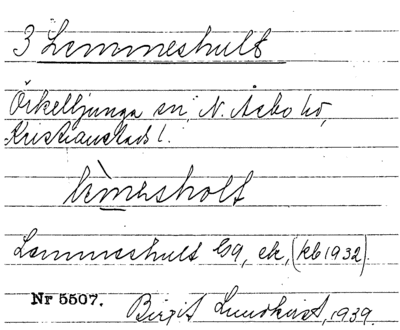 3 Lemmeshult
Örkelljunga sn, N. Åsbo hd,
Kristianstads l.
Lemmeshult by, ek, (kb 1932)
Nr 5507.
Birgit Lundkvist, 1939